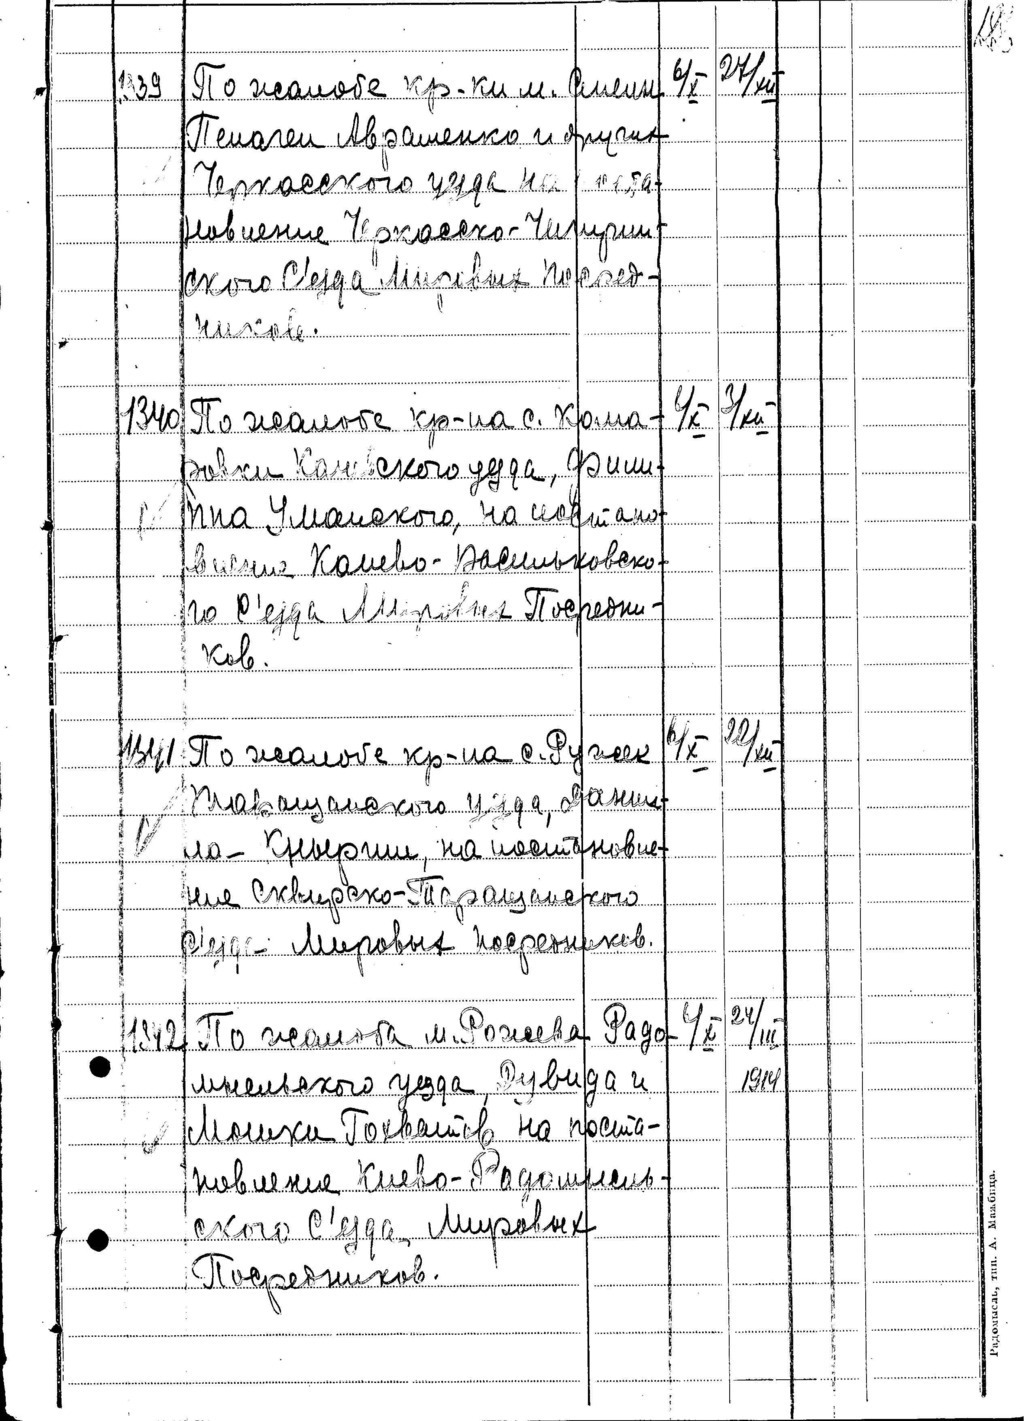 1339 По жалобе кр-ки м. Смелы 6/X 27/XII
Пелагеи Авраменко и других
Черкасского уезда на поста-
новление Черкасско-Чигирин-
ского С'езда Мировых Посред-
ников.
1340 По жалобе кр-на с. Кома- 6/X 3/XII
ровки Каневского уезда, Фили-
ппа Уманского, на постано-
вление Канево-Васильковско-
го С'езда Мировых Посредни-
ков.
1341 По жалобе кр-на с. Ружек 6/X 22/XII
Таращанского уезда, Дани-
ла на постановле-
ние Сквирско-Таращанского
С'езда Мировых Посредников.
1342 По жалобе м. Рожева Радо- 6/X 24/III
мысльского уезда, Дувида и 1914
Мошки на поста-
новление Киево-Радомысль-
ского С'езда Мировых
Посредников.
Радомысль, тип. А.